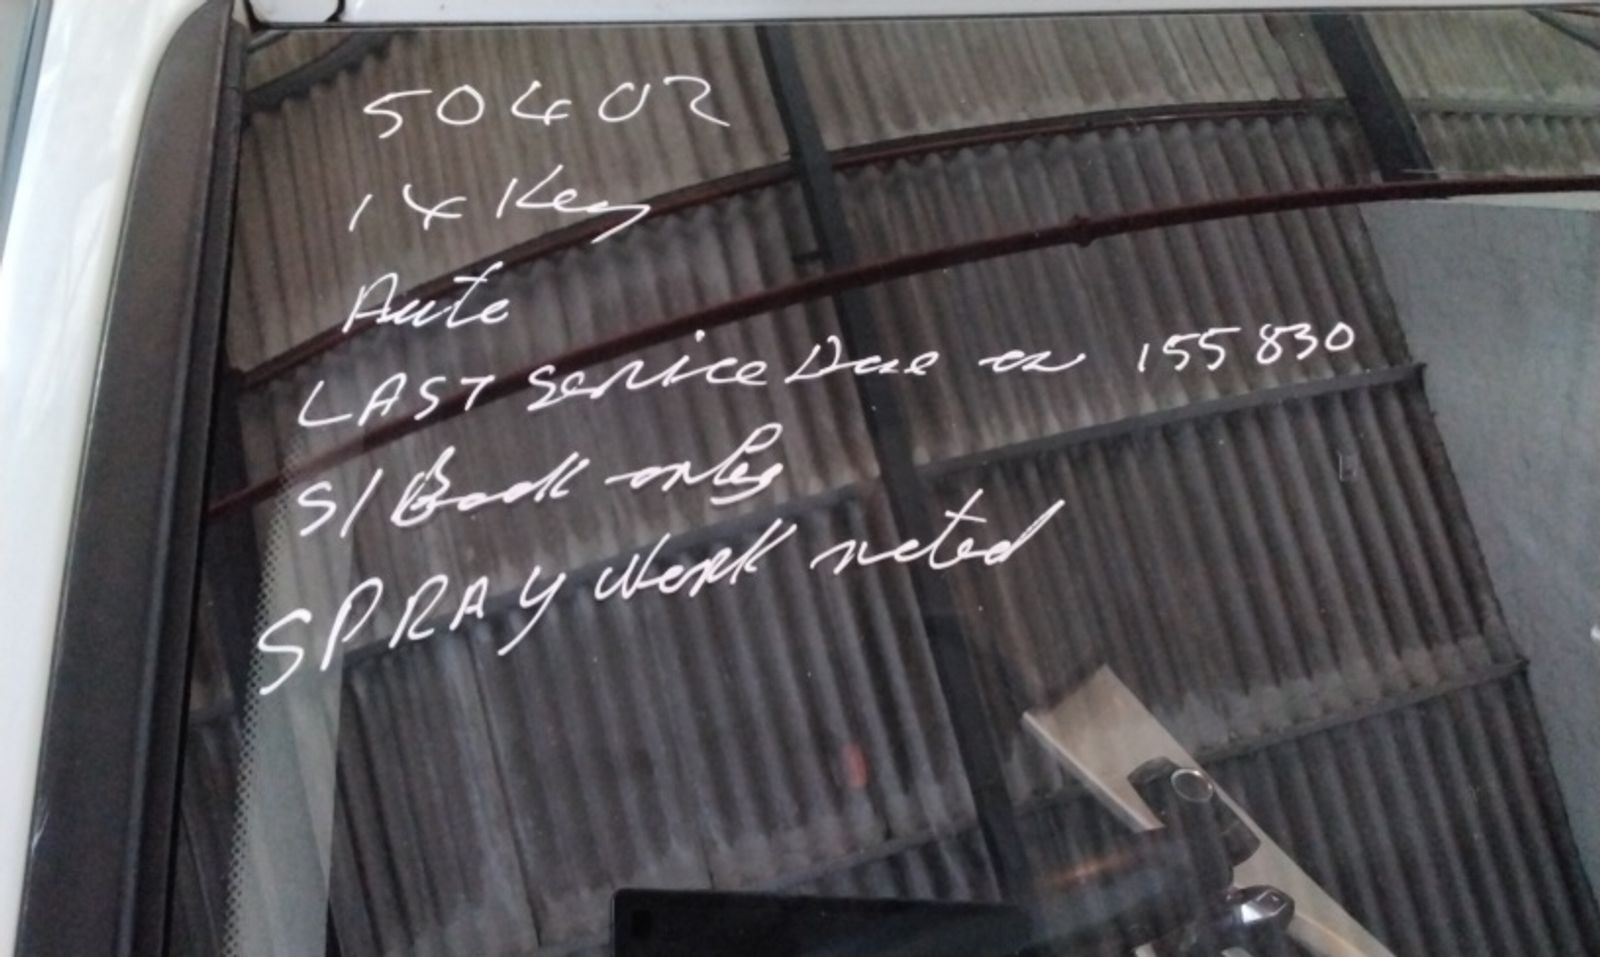 50402
1 x Key
Auto
LAST Service Due on 155 830
S/Book only
SPRAY Work noted